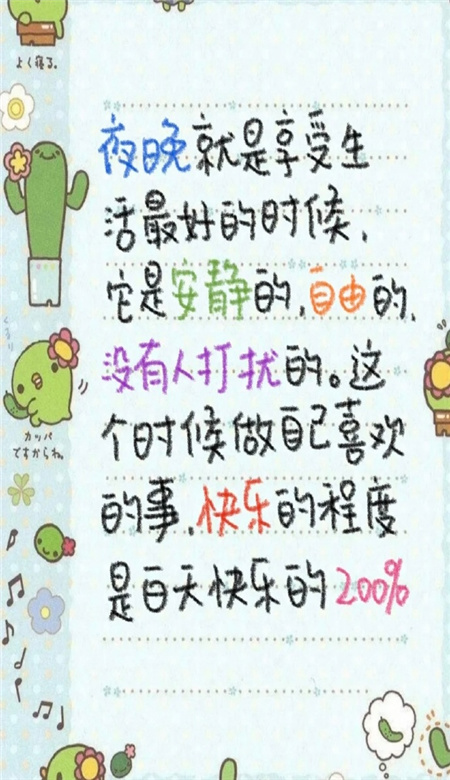 よく寝る。
夜晚就是享受生
活最好的时候,
它是安静的,自由的,
没有人打扰的。这
个时候做自己喜欢
的事,快乐的程度
是白天快乐的200%
くるり
カッパ
ですからね。